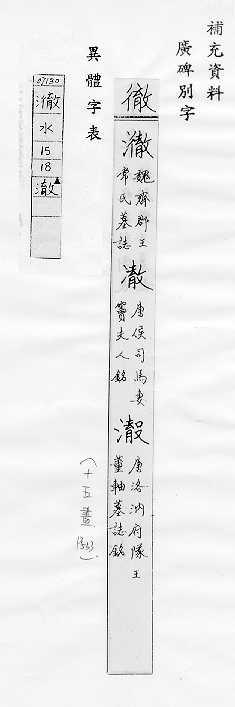 補充資料
廣碑別字
徹
魏齊郡王
常氏墓誌
澈
唐侯司馬妻
竇夫人銘
唐洛汭府隊正
董軸墓誌銘
(十五畫 563)
異體字表
07130
水
15
18
澈